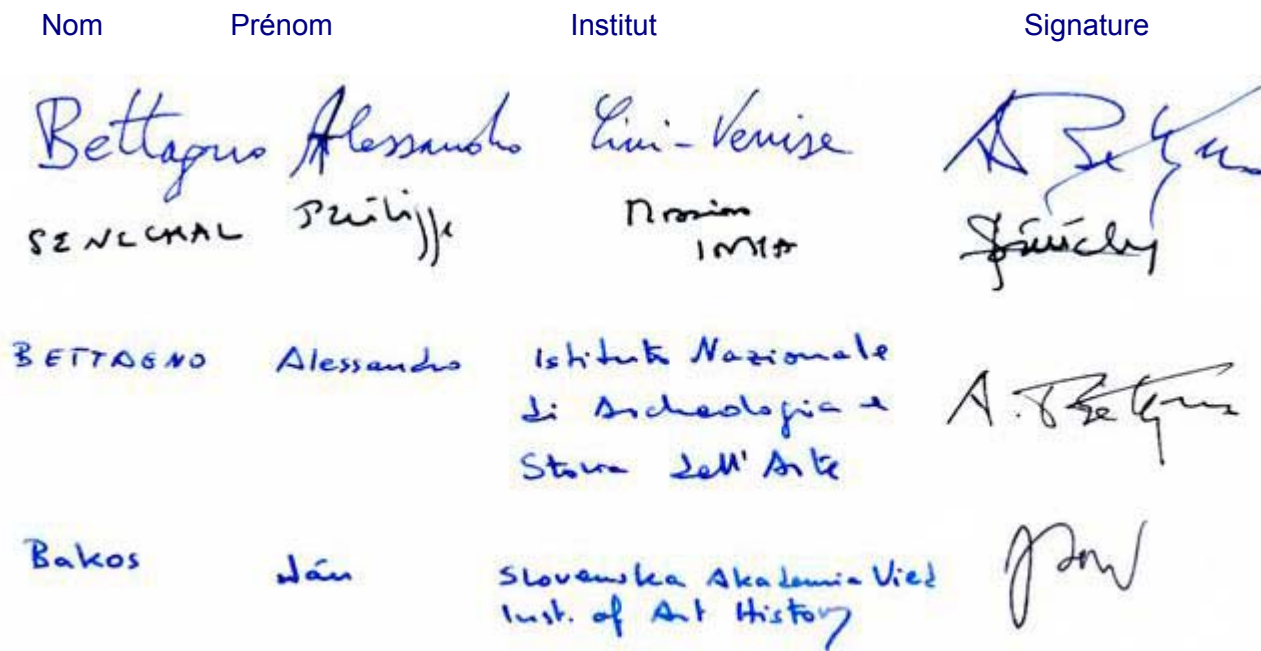 Nom Prénom Institut Signature
Bettagno Alessandro Cini-Venise A Bettagno
SENECHAL Philippe Mission
INHA Sénéchal
BETTAGNO Alessandro Istituto Nazionale
di Archeologia e
Storia dell'Arte
A. Bettagno
Bakos Ján Slovenska Akademia Vied
Inst. of Art History